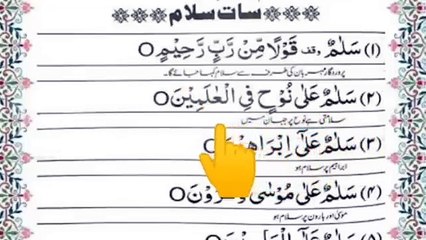 سات سلام
(۱) سَلٰمٌ وقف قَوْلًا مِّنْ رَّبٍّ رَّحِيْمٍ ○
پروردگار مہربان کی طرف سے سلام کہا جائے گا۔
(۲) سَلٰمٌ عَلٰى نُوْحٍ فِى الْعٰلَمِيْنَ ○
سلامتی ہے نوح پر جہان میں
(۳) سَلٰمٌ عَلٰٓى اِبْرَاهِيْمَ ○
ابراہیم پر سلام ہو
(۴) سَلٰمٌ عَلٰى مُوْسٰى وَهٰرُوْنَ ○
موسیٰ اور ہارون پر سلام ہو
(۵) سَلٰمٌ عَلٰٓى